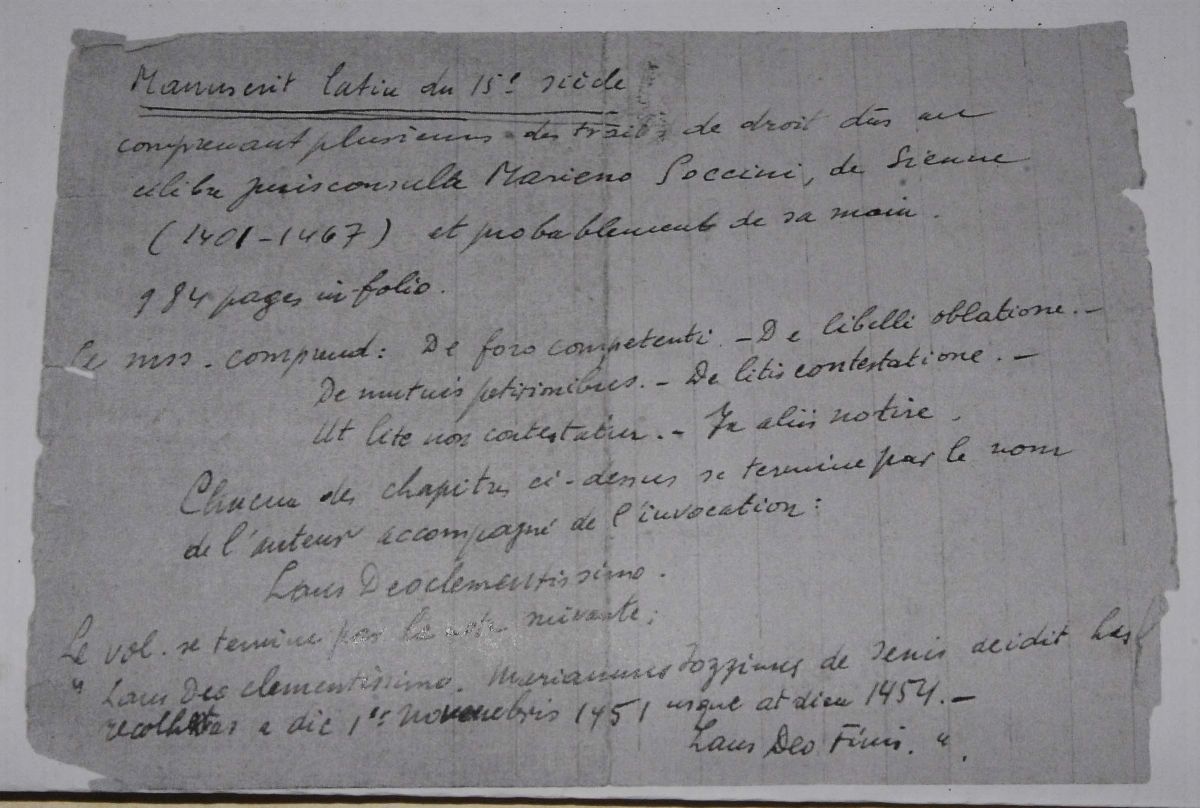 Manuscrit latin du 15e siècle
comprenant plusieurs des traités de droit dûs au
célèbre jurisconsulte Marieno Soccini, de Sienne
(1401-1467) et probablement de sa main.
984 pages in folio.
Le mss. comprend: De foro competenti. - De libelli oblatione. -
De mutuis petitionibus. - De litis contestatione. -
Ut lite non contestatur. - In aliis notire.
Chacun des chapitres ci-dessus se termine par le nom
de l'auteur accompagné de l'invocation:
Laus Deo clementissimo.
Le vol. se termine par la note suivante:
" Laus Deo clementissimo. Mariannus Sozzinus de Senis has
a die 1er novembris 1451 usque at diem 1454. -
Laus Deo Finis. ".